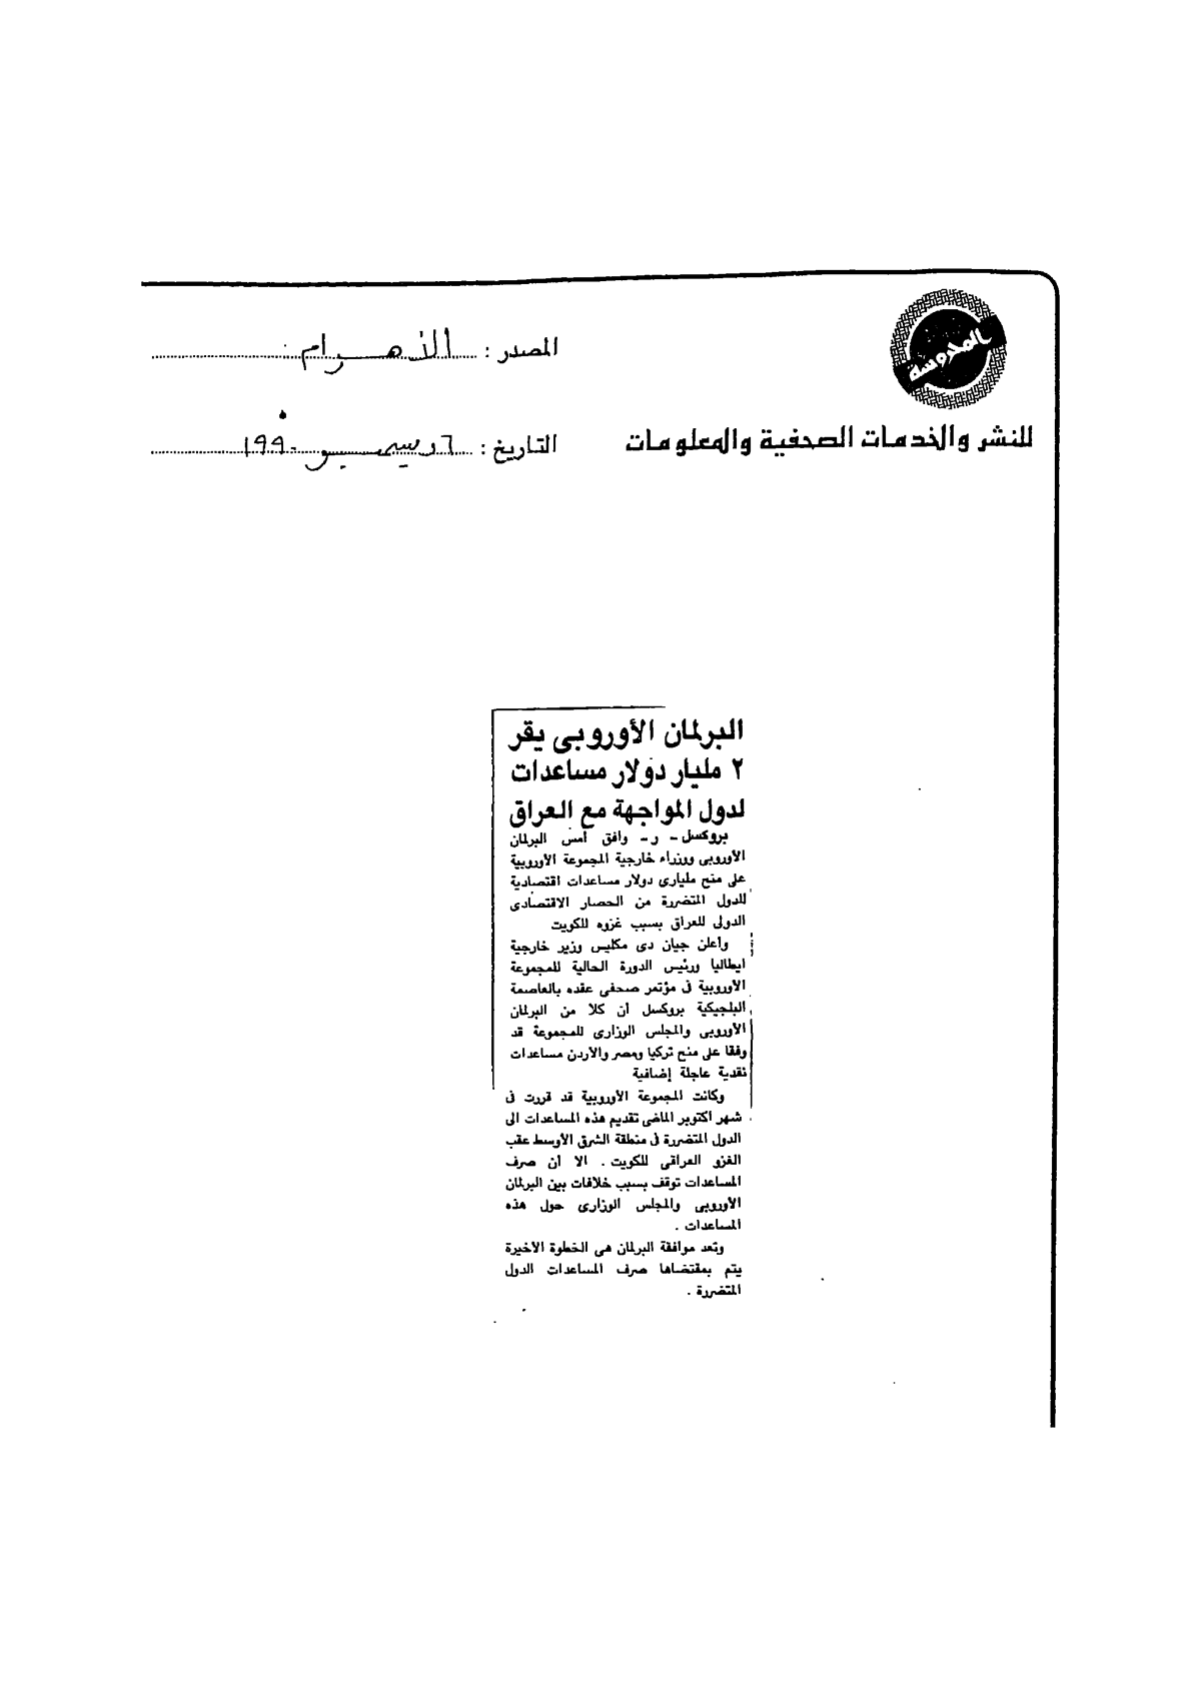 المحروسة
المصدر : الأهرام
للنشر والخدمات الصحفية والمعلومات
التاريخ : ٦ ديسمبر ١٩٩٠
البرلمان الأوروبى يقر
٢ مليار دولار مساعدات
لدول المواجهة مع العراق
بروكسل - ر - وافق أمس البرلمان
الأوروبى ووزراء خارجية المجموعة الأوروبية
على منح مليارى دولار مساعدات اقتصادية
للدول المتضررة من الحصار الاقتصادى
الدولى للعراق بسبب غزوه للكويت
وأعلن جيان دى مكليس وزير خارجية
ايطاليا ورئيس الدورة الحالية للمجموعة
الأوروبية فى مؤتمر صحفى عقده بالعاصمة
البلجيكية بروكسل أن كلا من البرلمان
الأوروبى والمجلس الوزارى للمجموعة قد
وفقا على منح تركيا ومصر والأردن مساعدات
نقدية عاجلة إضافية
وكانت المجموعة الأوروبية قد قررت فى
شهر اكتوبر الماضى تقديم هذه المساعدات الى
الدول المتضررة فى منطقة الشرق الأوسط عقب
الغزو العراقى للكويت . الا أن صرف
المساعدات توقف بسبب خلافات بين البرلمان
الأوروبى والمجلس الوزارى حول هذه
المساعدات .
وتعد موافقة البرلمان هى الخطوة الأخيرة
يتم بمقتضاها صرف المساعدات الدول
المتضررة .